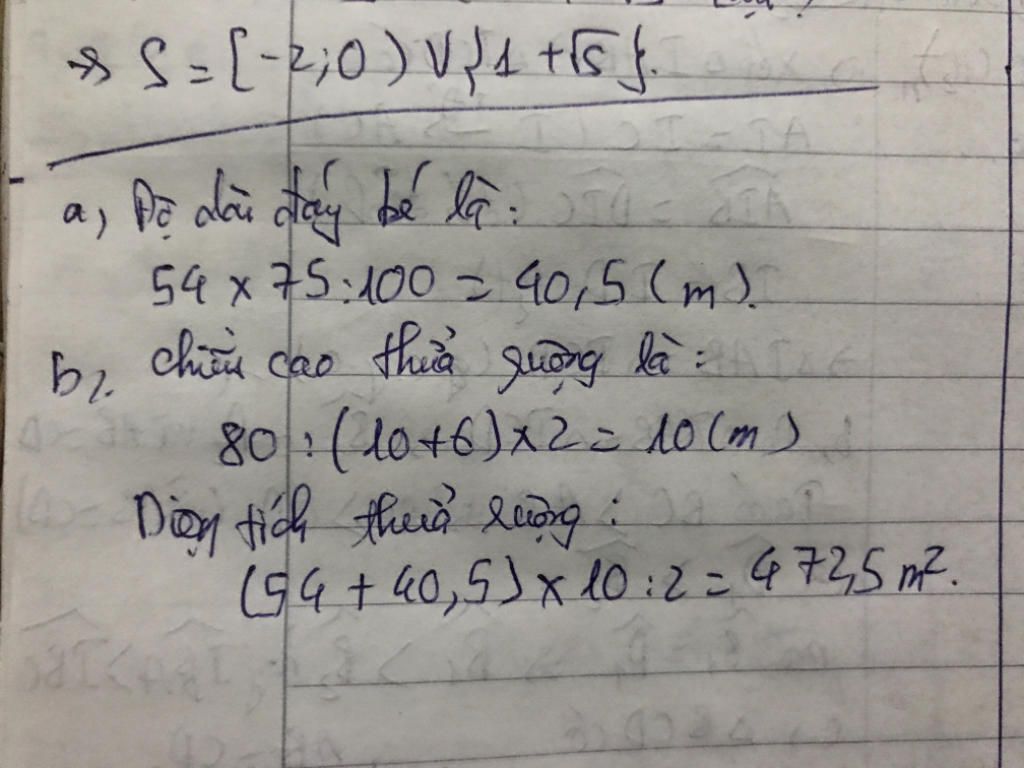 => S = [-2;0) V {1 + √5}.
a, Độ dài đáy bé là:
54 x 75:100 = 40,5 (m).
b, chiều cao thửa ruộng là:
80 : (10+6) x 2 = 10 (m)
Diện tích thửa ruộng:
(54 + 40,5) x 10 : 2 = 472,5 m².